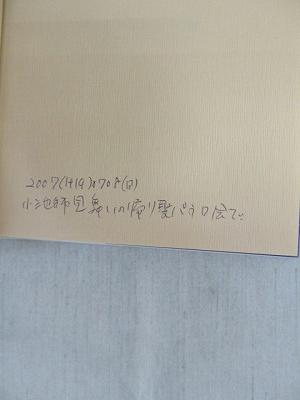 2007(H19)0708(日)
小池師見舞いの帰り聖パウロ会で